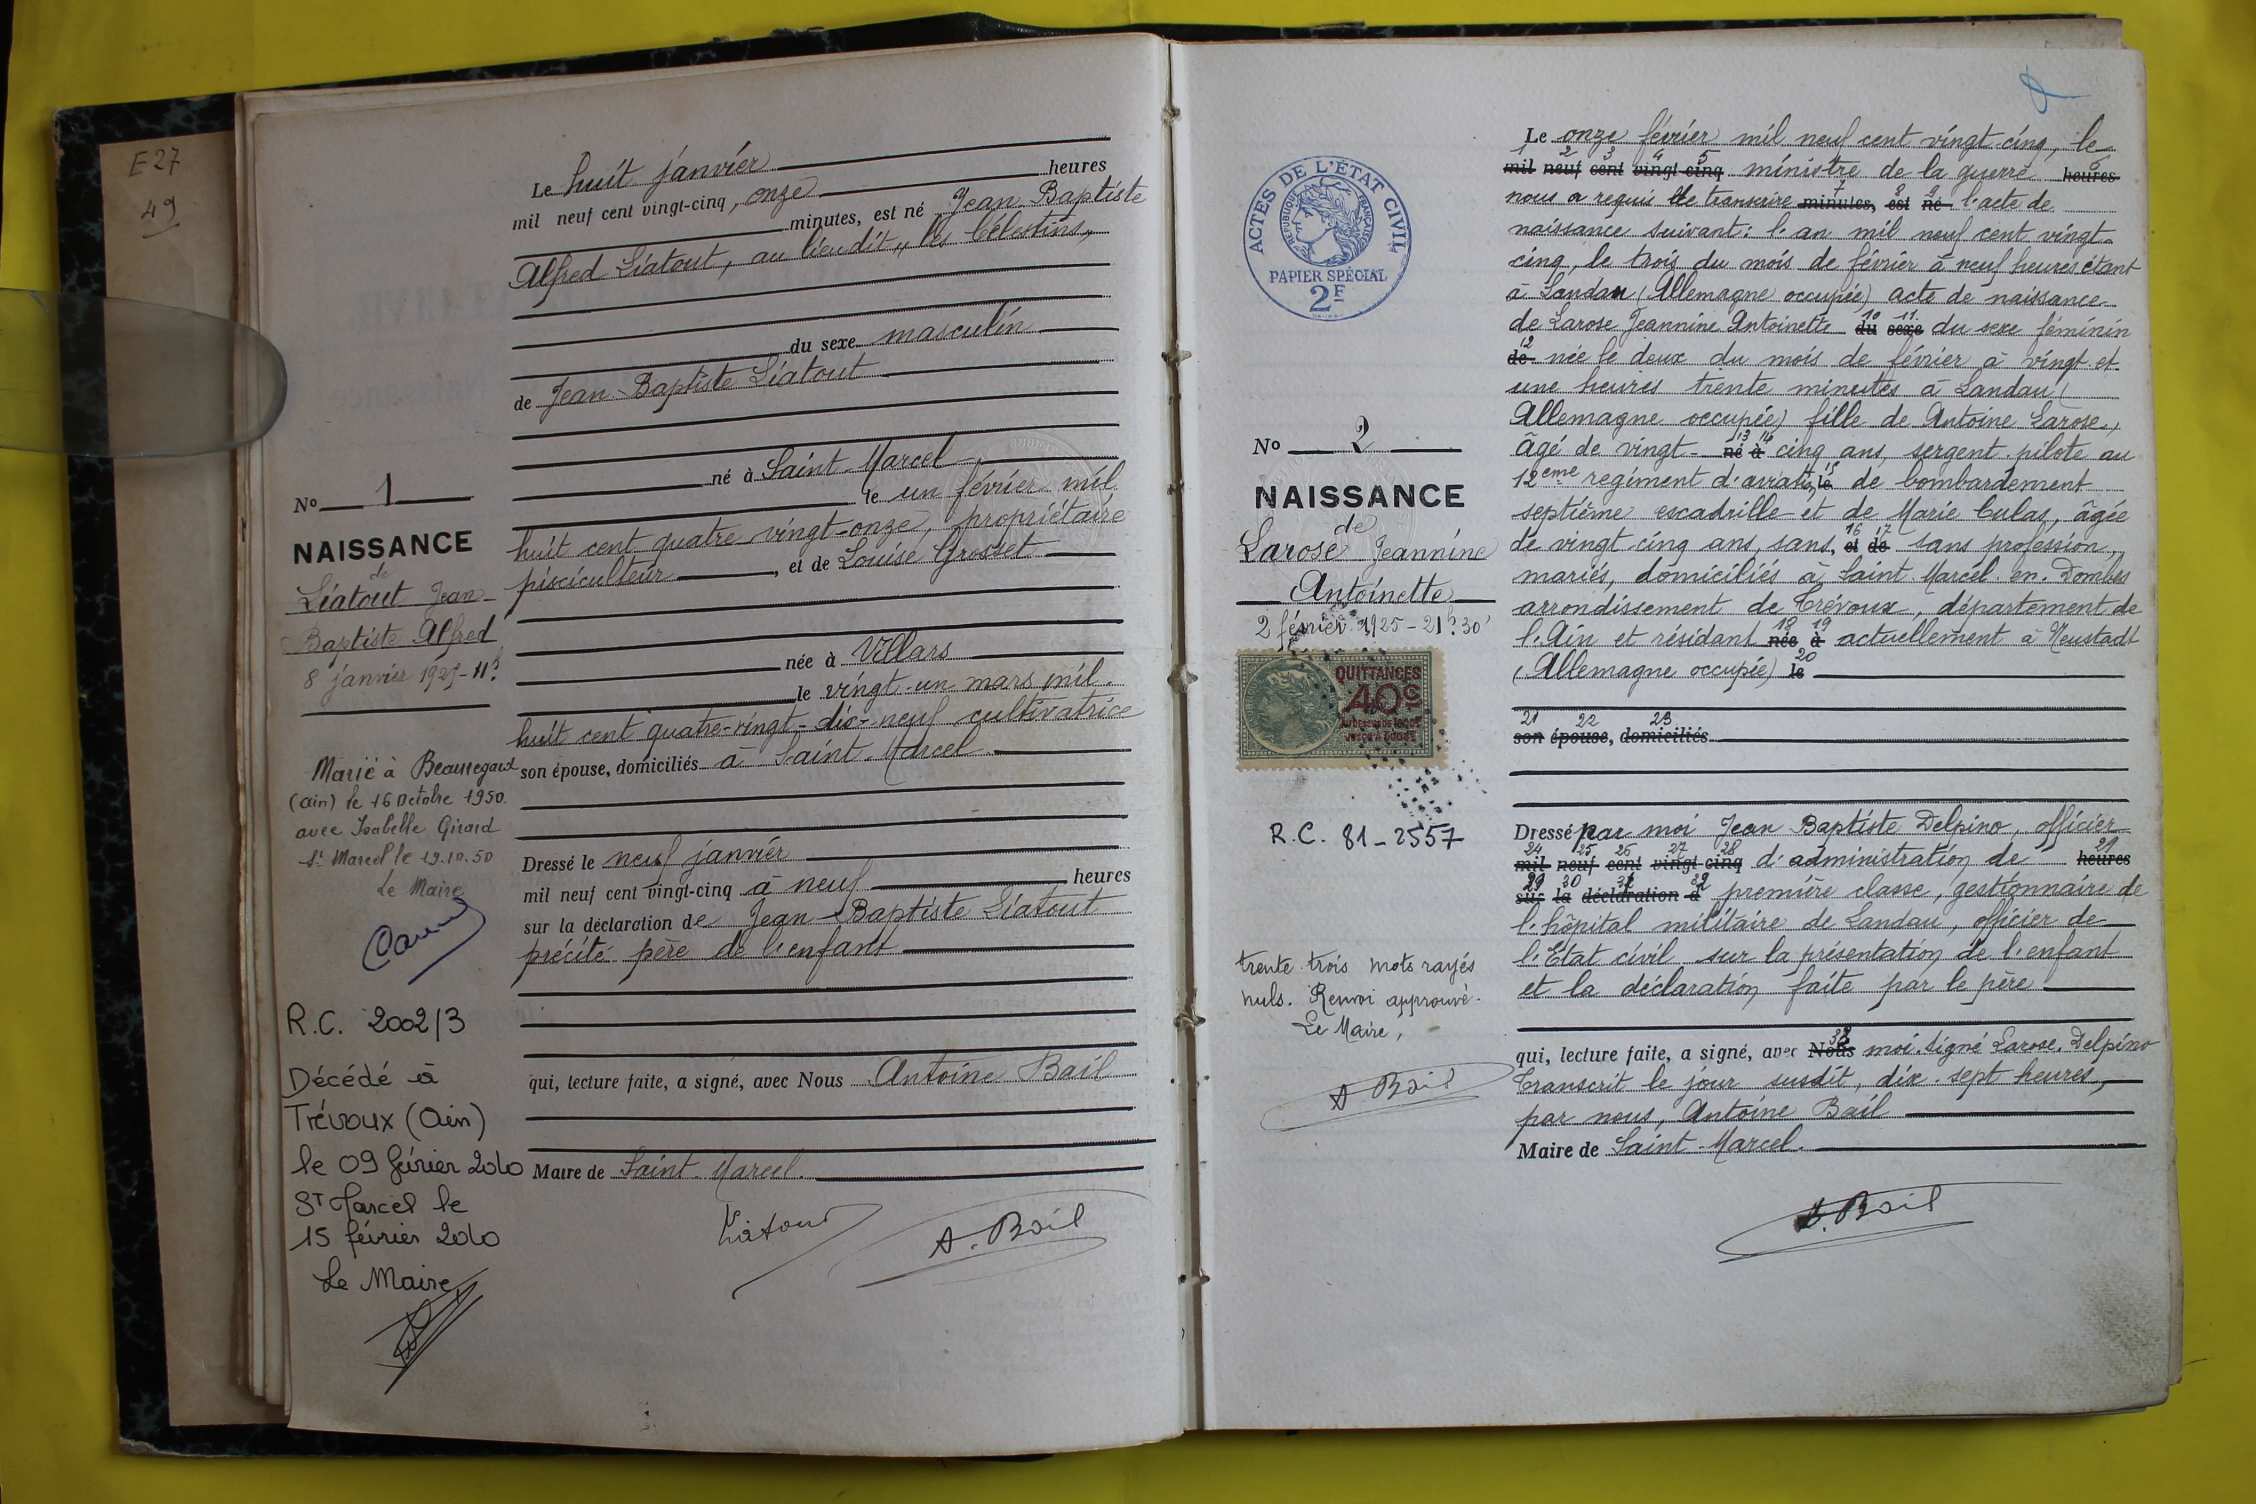 E 27
49
Le huit janvier
mil neuf cent vingt-cinq, onze heures
minutes, est né Jean Baptiste
Alfred Liatout, au lieudit „ les Célestins „
du sexe masculin
de Jean-Baptiste Liatout
né à Saint-Marcel
le un février mil
huit cent quatre vingt-onze, propriétaire
pisciculteur, et de Louise Grosset
née à Villars
le vingt-un mars mil
huit cent quatre-vingt-dix-neuf cultivatrice
son épouse, domiciliés à Saint-Marcel
Dressé le neuf janvier
mil neuf cent vingt-cinq à neuf heures
sur la déclaration de Jean-Baptiste Liatout
précité père de l'enfant
qui, lecture faite, a signé, avec Nous Antoine Bail
Maire de Saint-Marcel.
Liatout
A. Bail
No 1
NAISSANCE
de
Liatout Jean-
Baptiste Alfred
8 janvier 1925-11h
Marié à Beauregard
(ain) le 16 Octobre 1950
avec Isabelle Girard
St Marcel le 19.10.50
Le Maire
R.C. 2002/3
Décédé à
Trévoux (Ain)
le 09 février 2010
ST Marcel le
15 février 2010
Le Maire
ACTES DE L'ÉTAT CIVIL
RÉPUBLIQUE FRANÇAISE
PAPIER SPÉCIAL
2F
No 2
NAISSANCE
de
Larose Jeannine
Antoinette
2 février 1925-21h.30'
QUITTANCES
40c
R.C. 81-2557
trente trois mots rayés
nuls. Renvoi approuvé.
Le Maire,
A Bail
Le onze février mil neuf cent vingt-cinq, le
1 2 3 4 5 6
mil neuf cent vingt-cinq ministre de la guerre heures
7 8 9
nous a requis de transcrire minutes, est né l'acte de
naissance suivant: l'an mil neuf cent vingt-
cinq, le trois du mois de février à neuf heures étant
à Landau (Allemagne occupée) acte de naissance
10 11
de Larose Jeannine Antoinette du sexe du sexe féminin
12
de née le deux du mois de février à vingt et
une heures trente minutes à Landau (
Allemagne occupée) fille de Antoine Larose,
13 14
âgé de vingt- né à cinq ans, sergent-pilote au
15
12eme regiment d'aviation le de bombardement
septième escadrille et de Marie Culas, âgée
16 17
de vingt cinq ans, sans, et de sans profession,
mariés, domiciliés à Saint-Marcel-en-Dombes
arrondissement de Trévoux, département de
18 19
l'Ain et résidant née à actuellement à Neustadt
20
(Allemagne occupée) le
21 22 23
son épouse, domiciliés
Dressé par moi Jean Baptiste Delpino, officier
24 25 26 27 28 29
mil neuf cent vingt-cinq d'administration de heures
29 30 31 32
sur la déclaration d première classe, gestionnaire de
l'hôpital militaire de Landau, officier de
l'État civil sur la présentation de l'enfant
et la déclaration faite par le père
33
qui, lecture faite, a signé, avec Nous moi. Signé Larose. Delpino
Transcrit le jour susdit, dix-sept heures,
par nous, Antoine Bail
Maire de Saint-Marcel.
A. Bail